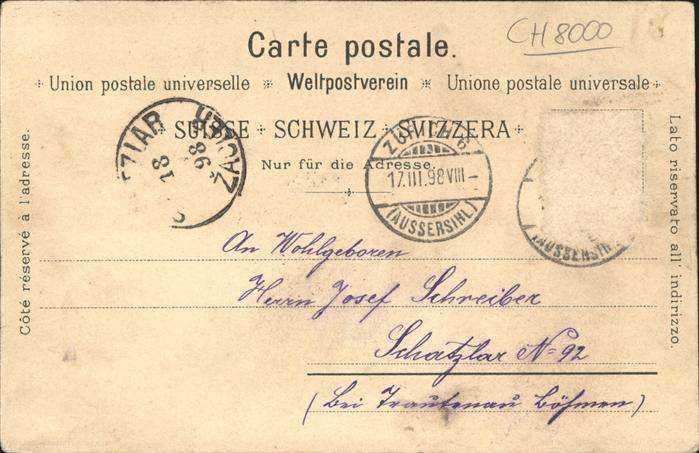 CH 8000
Carte postale.
Union postale universelle * Weltpostverein * Unione postale universale
SUISSE + SCHWEIZ + SVIZZERA
Nur für die Adresse.
Côté réservé à l'adresse.
Lato riservato all' indirizzo.
98
18
17.III.98 VIII-
(AUSSERSIHL)
An Wohlgeboren
Herrn Josef Schreiber
Schatzlar No 92
(Bei Trautenau Böhmen)